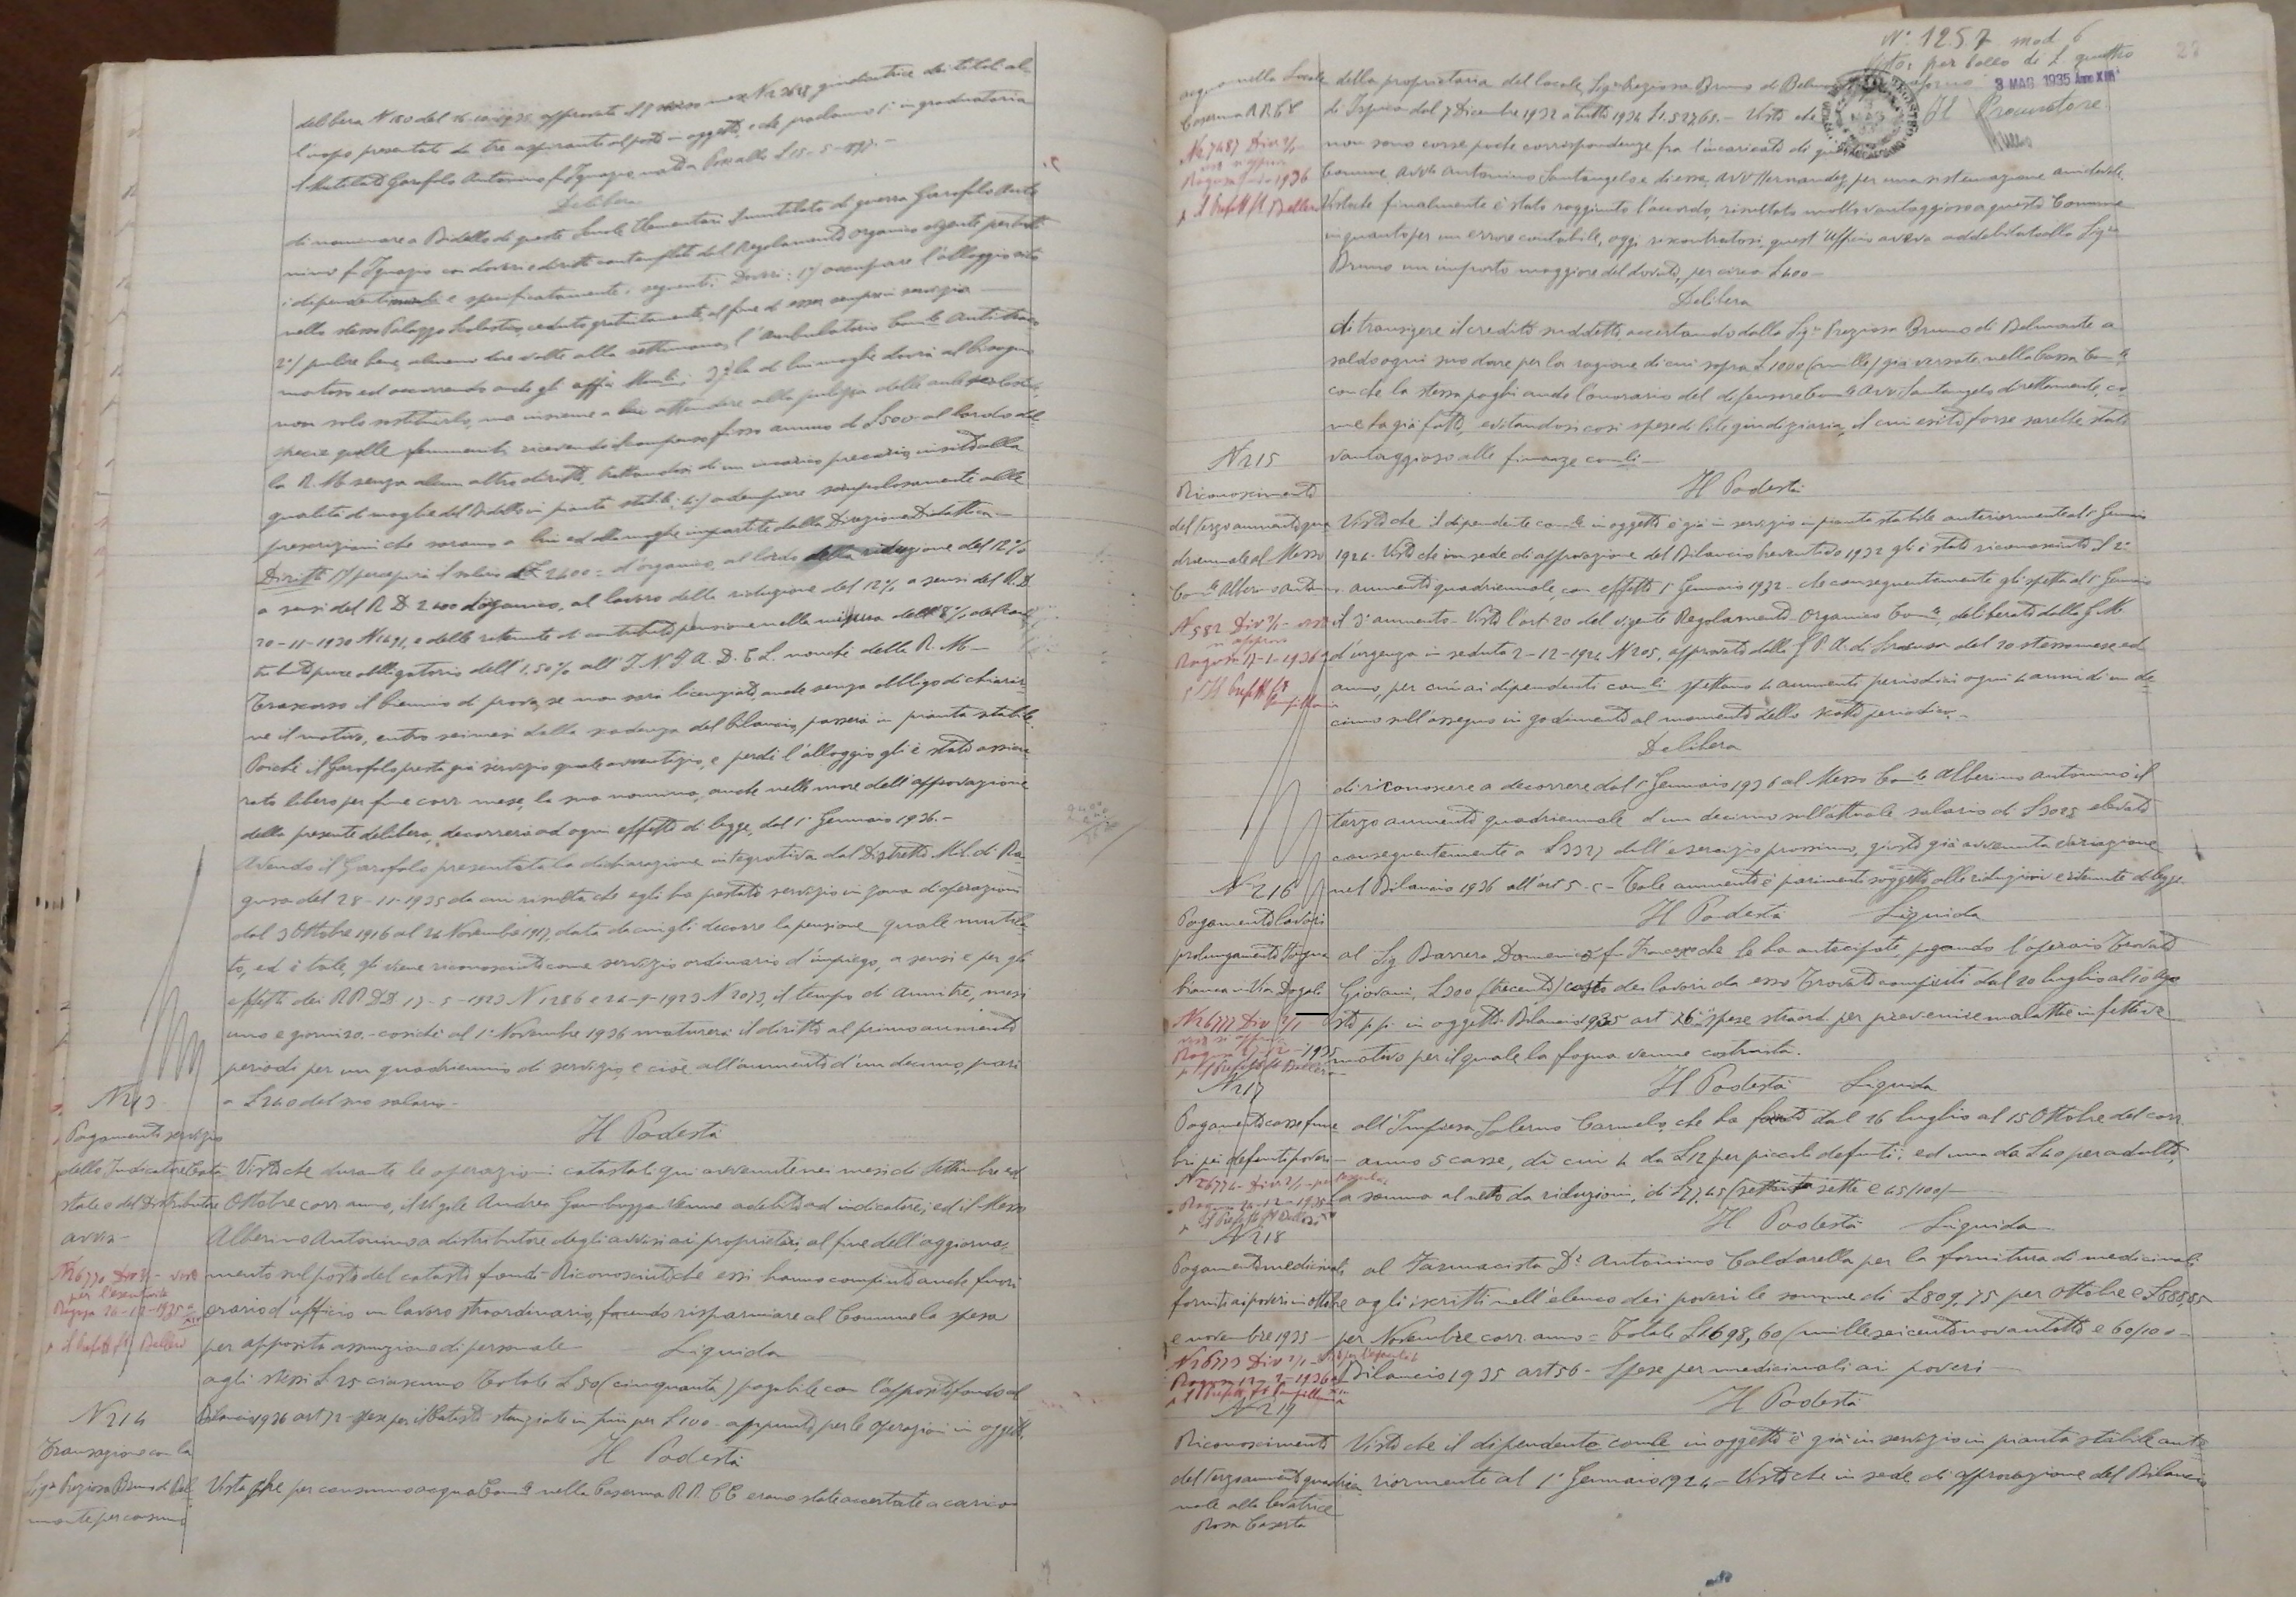 delibera N 180 del approvata N 2648 giudicatrice dei titoli al-
l'uopo presentati da tre aspiranti al posto in oggetto, e che proclamò 1° in graduatoria
il Mutilato Garofolo Antonino fu Ignazio nato a Pozzallo il 15-5-
Delibera
di nominare a Bidello di queste Scuole Elementari il mutilato di guerra Garofolo Anto
nino fu Ignazio con doveri e diritti contemplati dal Regolamento organico vigente per tutti
i dipendenti e specificatamente i seguenti: Doveri: 1°/ occupare l'alloggio sito
nello stesso Palazzo Scolastico, ceduto gratuitamente, al fine di esser sempre in servizio
2°/ pulire bene, almeno due volte alla settimana, l'Ambulatorio Com.le Antitraco
matoso ed occorrendo anche gli uffici 3° la di lui moglie dovrà al bisogno
non solo sostituirlo, ma insieme a lui attendere alla pulizia delle aule scolastiche,
specie quelle femminili ricevendo il compenso fisso annuo di £500 al lordo del
la R. M. senza alcun altro diritto, trattandosi di un incarico precario, insito alla
qualità di moglie del Bidello in pianta stabile; 4°/ adempiere scrupolosamente alle
prescrizioni che saranno a lui ed alla moglie impartite dalla Direzione Didattica.-
Diritti 1°/ percepirà il salario di £ 2400= d'organico, al lordo della riduzione del 12%
a sensi del R D 2400 d'organico, al lordo della riduzione del 12% a sensi del R.D.
20-11-1930 N 1491, e delle ritenute di contributo pensione nella misura dell'8% del
tributo pure obbligatorio dell'1,50% all'I.N.F.A.D.E.L. nonchè della R. M-
Trascorso il biennio di prova, se non sarà licenziato, anche senza obbligo di chiarir-
ne il motivo, entro sei mesi dalla scadenza del bilancio, passerà in pianta stabile.
Poichè il Garofolo presta già servizio quale avventizio, e perchè l'alloggio gli è stato assicu
rato libero per fine corr. mese, la sua nomina, anche nelle more dell'approvazione
della presente delibera, decorrerà ad ogni effetto di legge, dal 1° Gennaio 1936.-
Avendo il Garofolo presentata la dichiarazione integrativa dal Distretto Mil. di Ra-
gusa del 28-11-1935 da cui risulta che egli ha prestato servizio in zona d'operazioni
dal 3 Ottobre 1916 al 24 Novembre 1917, data da cui gli decorre la pensione quale mutila
to, ed è tale, gli viene riconosciuto come servizio ordinario d'impiego, a sensi e per gli
effetti dei RR DD 17-5-1923 N 1286 e 24-9-1923 N 2073, il tempo di anni tre, mesi
uno e giorni 20.- cosichè al 1° Novembre 1936 maturerà il diritto al primo aumento
periodo per un quadriennio di servizio, e cioè all'aumento d'un decimo, pari
a £240 del suo salario.-
N 213
Pagamento servizio
dello Indicatore Cata
stale e del Distributore
avvisi-
N 26770 Div 2/1 - visto
per l'esecutività
Ragusa 24-12-1935
p il Prefetto f° Bellero
Il Podestà
Visto che durante le operazioni catastali qui avvenute nei mesi di Settembre ed
Ottobre corr. anno, il vigile Andrea Gambuzza venne adebito ad indicatore; ed il Messo
Alberino Antonino a distributore degli avvisi ai proprietari, al fine dell'aggiorna-
mento sul posto del catasto fondi- Riconosciuto che essi hanno compiuto anche fuori
orario d'ufficio un lavoro straordinario, facendo risparmiare al Comune la spesa
per apposita assunzione di personale Liquida
agli stessi £ 25 ciascuno Totale £ 50 (cinquanta) pagabile con l'apposito fondo del
Bilancio 1936 art 72- spese per il Catasto- stanziate in più per £100- appunto per le operazioni in oggetto.
N 214
Transazione con la
Sig.ra Preziosa Bruno di Bel
monte per consumo
Il Podestà
Visto che per consumo acqua Com.le nella Caserma RR CC erano state accertate a carico
N° 1257 mod 6
Visto per bollo di £ quattro
3 MAG 1935 Anno XIII°
Il Procuratore
acqua nella locale
Caserma RR CC
N 27487 Div 2/1
visto si approva
Ragusa 1936
p il Prefetto f° Bellero
della proprietaria del locale, Sig.ra Preziosa Bruno di Belmonte
di Ispica dal 7 Dicembre 1932 a tutto 1934 £1.527,65.- Visto che
non sono corse poche corrispondenze fra l'incaricato di questo
Comune Avv.to Antonino Santangelo e di essa, Avv Hernandez, per una sistemazione amichevole.
Visto che finalmente è stato raggiunto l'accordo, risultato molto vantaggioso a questo Comune
in quanto per un errore contabile, oggi riscontratosi, quest'Ufficio aveva addebitato alla Sig.ra
Bruno un importo maggiore del dovuto, per circa £400-
Delibera
di transigere il credito suddetto, accertando dalla Sig.ra Preziosa Bruno di Belmonte a
saldo ogni suo dare per la ragione di cui sopra £1000 (mille) già versate nella Cassa Com.le
con che la stessa paghi anche l'onorario del difensore Com.le Avv. Santangelo direttamente, co-
me ha già fatto, evitandosi così spese di lite giudiziaria, il cui esito forse sarebbe stato
vantaggioso alle finanze com.li-
N 215
Riconoscimento
del terzo aumento qua
driennale al Messo
Com.le Alberino Antonino
N 582 Div 2/1 - visto
si approva
Ragusa 17-1-1936
p Il Prefetto f°
Il Podestà
Visto che il dipendente com.le in oggetto è già in servizio in pianta stabile anteriormente al 1° Gennaio
1924- Visto che in sede di approvazione del Bilancio Preventivo 1932 gli è stato riconosciuto il 2°
aumento quadriennale, con effetto 1° Gennaio 1932- che conseguentemente gli spetta al 1° Gennaio
il 3° aumento- Visto l'art 20 del vigente Regolamento Organico Com.le, deliberato dalla G. M.
d'urgenza in seduta 2-12-1924 N 205, approvato dalla G.P.A. di Siracusa del 20 stesso mese ed
anno, per cui ai dipendenti com.li spettano 4 aumenti periodici ogni 4 anni di un de-
cimo sull'assegno in godimento al momento dello scatto periodico-
Delibera
di riconoscere a decorrere dal 1° Gennaio 1936 al Messo Com.le Alberino Antonino il
terzo aumento quadriennale d'un decimo sull'attuale salario di £3025 elevato
conseguentemente a £3327 dall'esercizio prossimo, giusto già avvenuta variazione
nel Bilancio 1936 all'art 5-c- Tale aumento è parimenti soggetto alle riduzioni e ritenute di legge
N 216
Pagamento lavori
prolungamento fogna
bianca in Via Dogali
N 26777 Div 2/1
visto si approva
Ragusa 27-12-1935
p Il Prefetto f° Bellero
Il Podestà Liquida
al Sig Barrera Domenico fu Francesco che le ha anticipate, pagando l'operaio Trovato
Giovani, £300 (trecento) costo dei lavori da esso Trovato compiuti dal 20 luglio al 10 Ago
sto p.p. in oggetto- Bilancio 1935 art 56 "Spese straord. per prevenire malattie infettive
motivo per il quale la fogna venne costruita.
N 217
Pagamento casse fune
bri pei defunti poveri
N 26774- Div 2/1-
Ragusa 24-12-1935
p il Prefetto f° Bellero
Il Podestà Liquida
all'Impresa Salerno Carmelo, che ha fornito dal 26 luglio al 15 Ottobre del corr.
anno 5 casse, di cui 4 da £12 per piccoli defunti, ed una da £40 per adulto,
la somma al netto da riduzioni, di £77,45 (settanta sette e 45/100)-
N 218
Pagamento medicinali
forniti ai poveri in ottobre
e novembre 1935-
N 26773 Div 2/1- visto per l'esecutività
Ragusa 12-2-1936
p Il Prefetto f°
Il Podestà Liquida
al Farmacista Dr Antonino Caldarella per la fornitura di medicinali
agli iscritti nell'elenco dei poveri le somme di £809,75 per Ottobre e £888,85
per Novembre corr. anno= Totale £1698,60 (milleseicentonovantotto e 60/100-
Bilancio 1935 art 56- Spese per medicinali ai poveri-
N 219
Riconoscimento
del terzo aumento quadrien
nale alla levatrice
Rosa Caserta
Il Podestà
Visto che il dipendente com.le in oggetto è già in servizio in pianta stabile ante-
riormente al 1° Gennaio 1924- Visto che in sede di approvazione del Bilancio